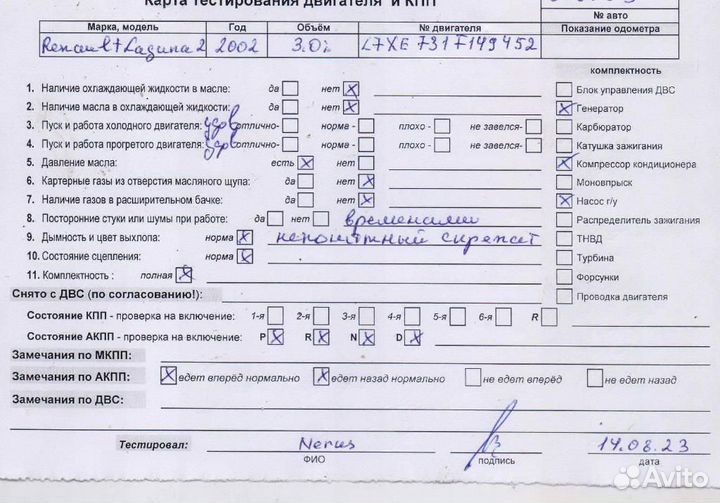 Карта тестирования двигателя и КПП
№ авто
Марка, модель Год Объём № двигателя Показание одометра
Renault Laguna 2 2002 3.0i L7XE 731 F149452
комплектность
1. Наличие охлаждающей жидкости в масле: да нет X
Блок управления ДВС
2. Наличие масла в охлаждающей жидкости: да нет X
X Генератор
3. Пуск и работа холодного двигателя: удов отлично- норма - плохо - не завелся-
Карбюратор
4. Пуск и работа прогретого двигателя: удов отлично- норма - плохо - не завелся-
Катушка зажигания
5. Давление масла: есть X нет
X Компрессор кондиционера
6. Картерные газы из отверстия масляного щупа: да нет X
Моновпрыск
7. Наличие газов в расширительном бачке: да нет X
X Насос г/у
8. Посторонние стуки или шумы при работе: да нет временами
Распределитель зажигания
9. Дымность и цвет выхлопа: норма X непонятный скрежет
ТНВД
10. Состояние сцепления: норма X
Турбина
11. Комплектность : полная X
Форсунки
Снято с ДВС (по согласованию!):
Проводка двигателя
Состояние КПП - проверка на включение: 1-я 2-я 3-я 4-я 5-я 6-я R
Состояние АКПП - проверка на включение: P X R X N X D X
Замечания по МКПП:
Замечания по АКПП: X едет вперёд нормально X едет назад нормально не едет вперёд не едет назад
Замечания по ДВС:
Тестировал: Nerus 14.08.23
ФИО подпись дата
Avito